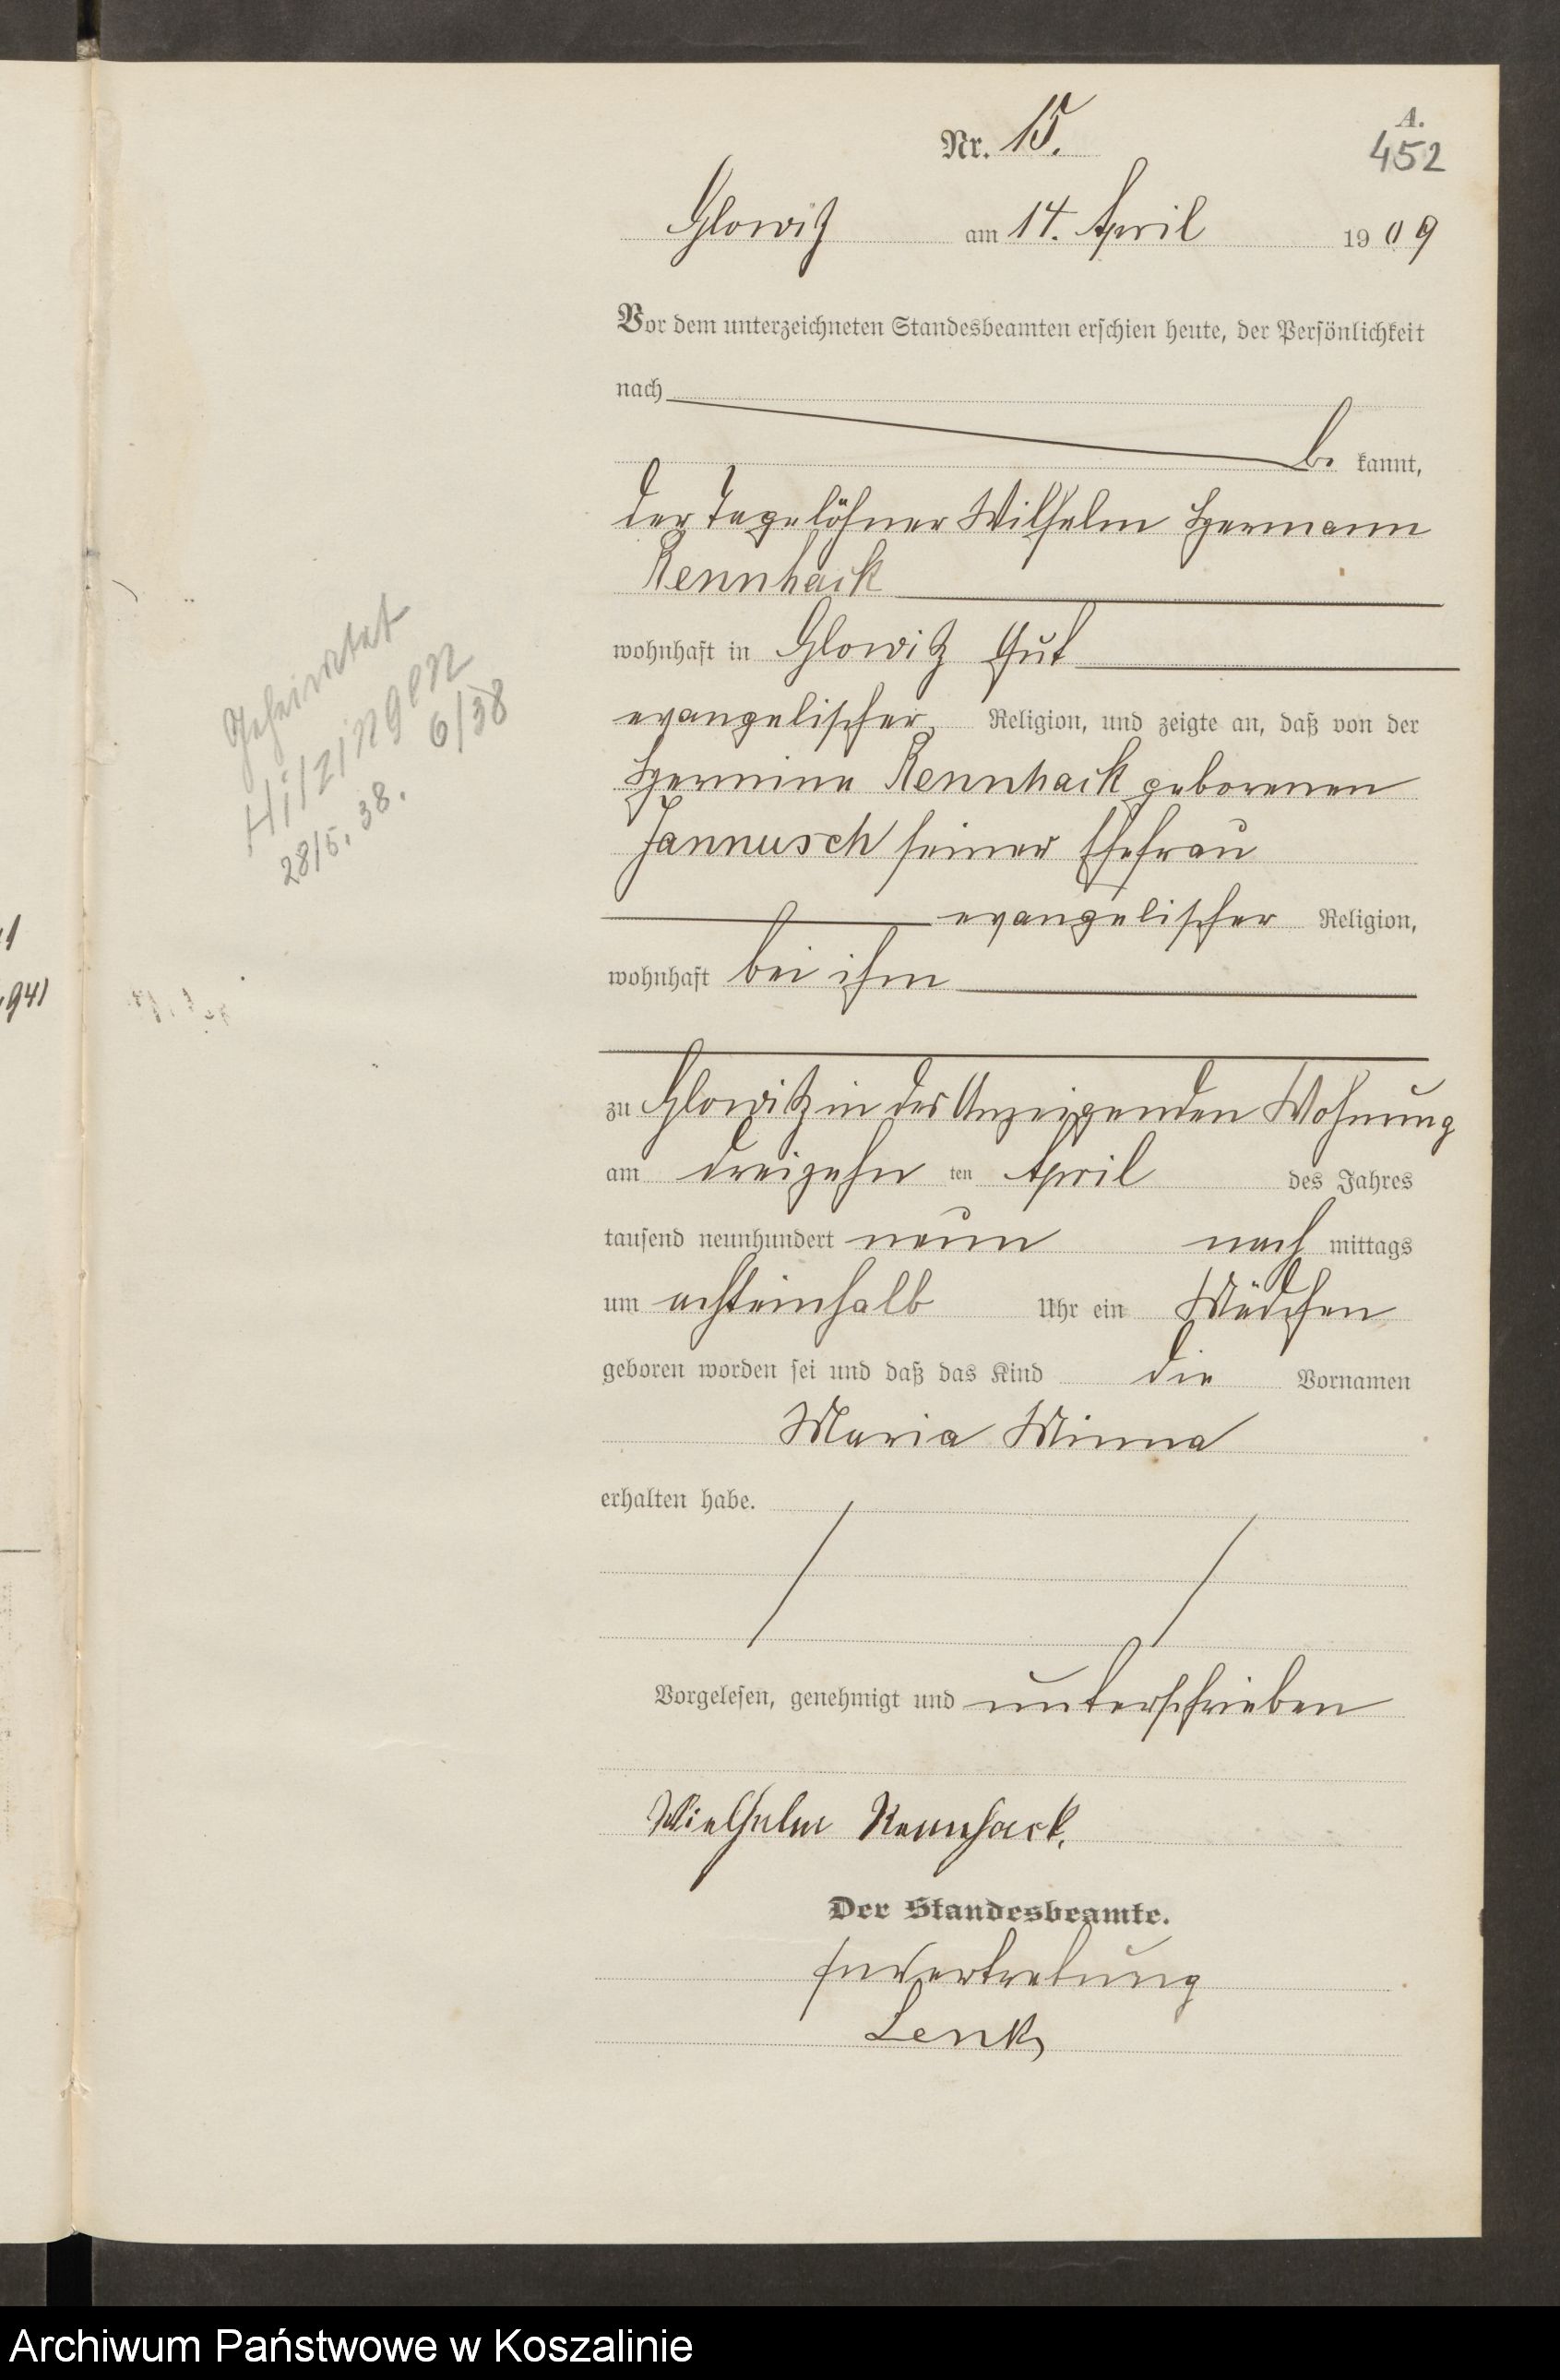 A.
452
Nr. 15.
Glowitz am 14. April 1909
Vor dem unterzeichneten Standesbeamten erschien heute, der Persönlichkeit
nach
be kannt,
der Tagelöhner Wilhelm Hermann
Rennhack
wohnhaft in Glowitz Gut
evangelischer Religion, und zeigte an, daß von der
Hermine Rennhack geborenen
Jannusch seiner Ehefrau
evangelischer Religion,
wohnhaft bei ihm
zu Glowitz in des Anzeigenden Wohnung
am dreizehn ten April des Jahres
tausend neunhundert neun nach mittags
um achteinhalb Uhr ein Mädchen
geboren worden sei und daß das Kind die Vornamen
Maria Minna
erhalten habe.
Vorgelesen, genehmigt und unterschrieben
Wielhelm Rennhack.
Der Standesbeamte.
In Vertretung
Lenk
Geheiratet
Hilzingen
6/38
28/5. 38.
941
Archiwum Państwowe w Koszalinie